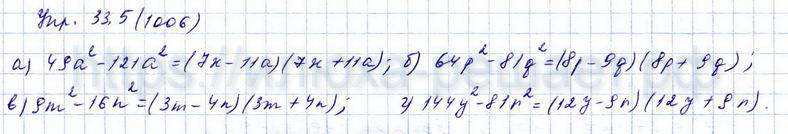 Упр. 33.5 (1006)
а) 49a²-121a²=(7x-11a)(7x+11a); б) 64p²-81q²=(8p-9q)(8p+9q);
в) 9m²-16n²=(3m-4n)(3m+4n); г) 144y²-81n²=(12y-9n)(12y+9n).